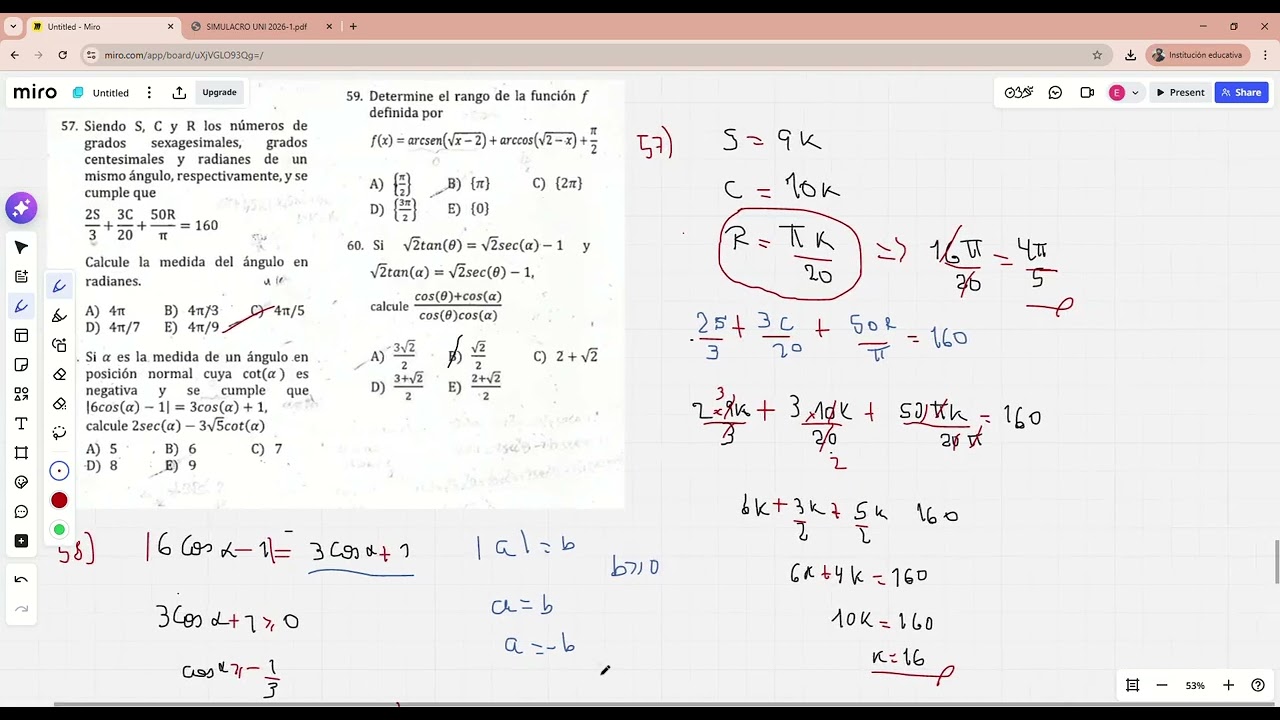 Untitled - Miro
SIMULACRO UNI 2026-1.pdf
miro.com/app/board/uXjVGLO93Qg=/
Institución educativa
miro
Untitled
Upgrade
E
Present
Share
57. Siendo S, C y R los números de
grados sexagesimales, grados
centesimales y radianes de un
mismo ángulo, respectivamente, y se
cumple que
2S/3 + 3C/20 + 50R/π = 160
Calcule la medida del ángulo en
radianes.
A) 4π B) 4π/3 C) 4π/5
D) 4π/7 E) 4π/9
Si α es la medida de un ángulo en
posición normal cuya cot(α) es
negativa y se cumple que
|6cos(α) − 1| = 3cos(α) + 1,
calcule 2sec(α) − 3√5cot(α)
A) 5 B) 6 C) 7
D) 8 E) 9
59. Determine el rango de la función f
definida por
f(x) = arcsen(√x−2) + arccos(√2−x) + π/2
A) {π/2} B) {π} C) {2π}
D) {3π/2} E) {0}
60. Si √2tan(θ) = √2sec(α) − 1 y
√2tan(α) = √2sec(θ) − 1,
calcule cos(θ)+cos(α)/cos(θ)cos(α)
A) 3√2/2 B) √2/2 C) 2 + √2
D) 3+√2/2 E) 2+√2/2
57)
S = 9K
C = 10K
R = πK/20 => 16π/20 = 4π/5
2S/3 + 3C/20 + 50R/π = 160
2×9K/3 + 3×10K/20 + 50πK/20π = 160
3
2
6K + 3K/2 + 5K/2 160
6K + 4K = 160
10K = 160
K = 16
58]
|6 Cos α − 1| = 3 Cos α + 1
3 Cos α + 1 ≥ 0
cos α ≥ − 1/3
|a| = b
b ≥ 0
a = b
a = −b
53%